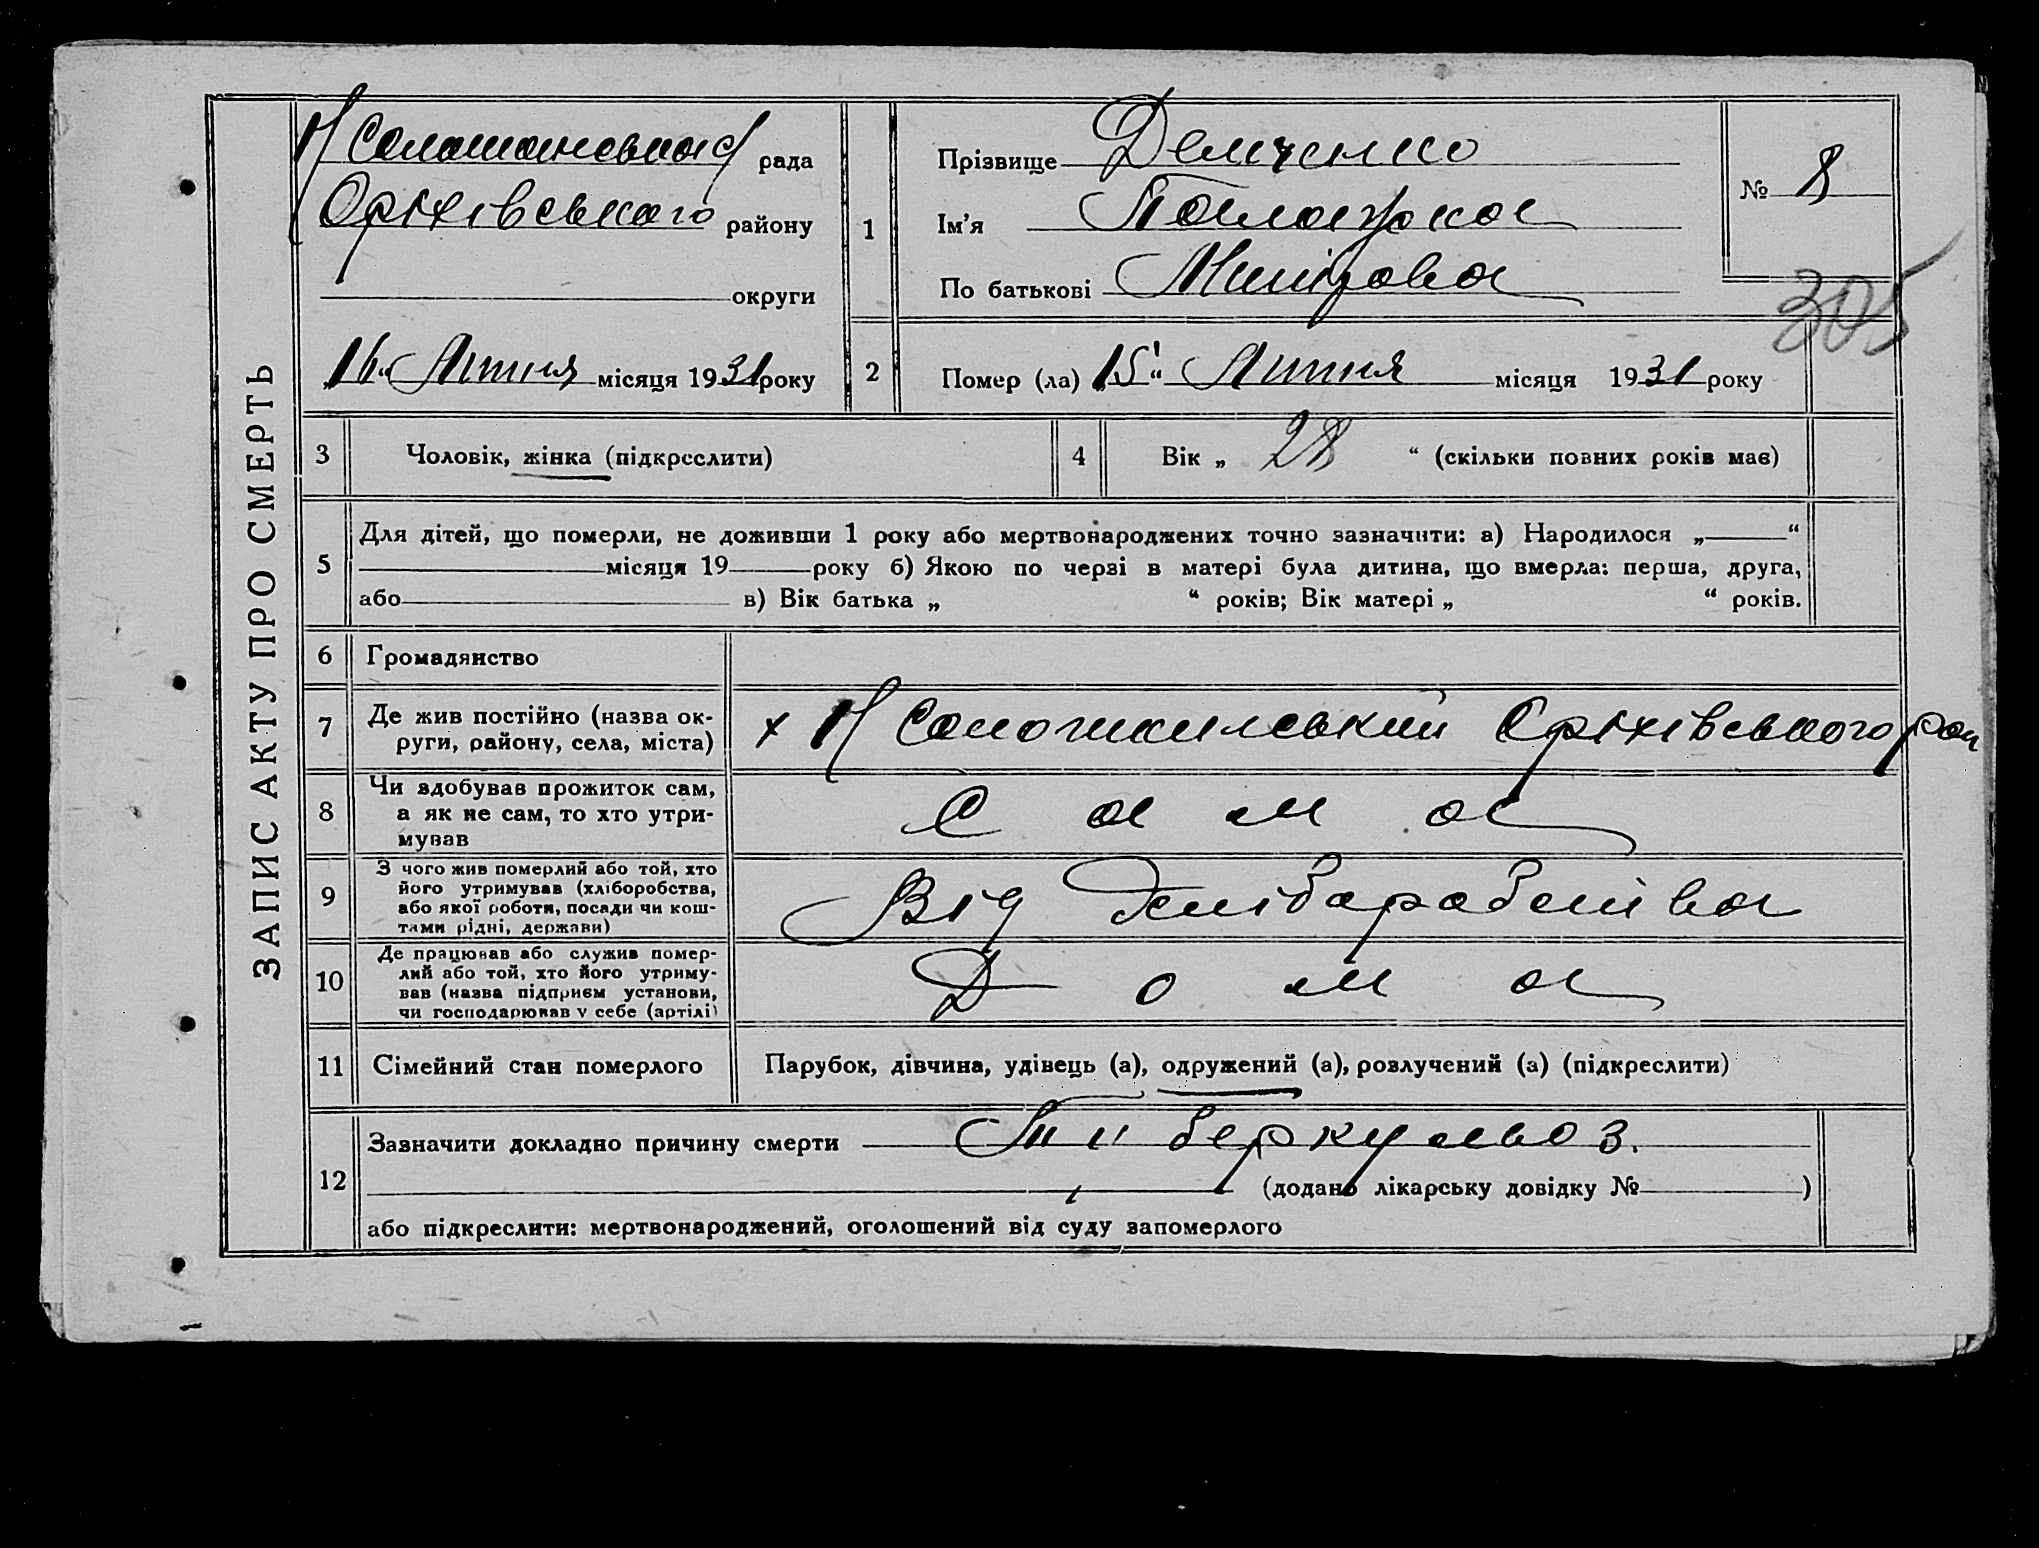 ЗАПИС АКТУ ПРО СМЕРТЬ
рада
Оріхівського району
округи
„16“ Липня місяця 1931 року
1
Прізвище Демченко
Ім'я Палажка
По батькові
№ 8
305
2
Помер (ла) „15“ Липня місяця 1931 року
3
Чоловік, жінка (підкреслити)
4
Вік „ 28 “ (скільки повних років має)
5
Для дітей, що померли, не доживши 1 року або мертвонароджених точно зазначити: а) Народилося „ “
місяця 19 року б) Якою по черзі в матері була дитина, що вмерла: перша, друга,
або в) Вік батька „ “ років; Вік матері „ “ років.
6
Громадянство
7
Де жив постійно (назва ок-
руги, району, села, міста)
х Н Солошинський Оріхівського рай
8
Чи здобував прожиток сам,
а як не сам, то хто утри-
мував
Сама
9
З чого жив померлий або той, хто
його утримував (хліборобства,
або якої роботи, посади чи кош-
тами рідні, держави)
Від
10
Де працював або служив помер-
лий або той, хто його утриму-
вав (назва підприєм установи,
чи господарював у себе (артілі)
Дома
11
Сімейний стан померлого
Парубок, дівчина, удівець (а), одружений (а), розлучений (а) (підкреслити)
12
Зазначити докладно причину смерти Тиберкульоз.
(додано лікарську довідку № )
або підкреслити: мертвонароджений, оголошений від суду запомерлого